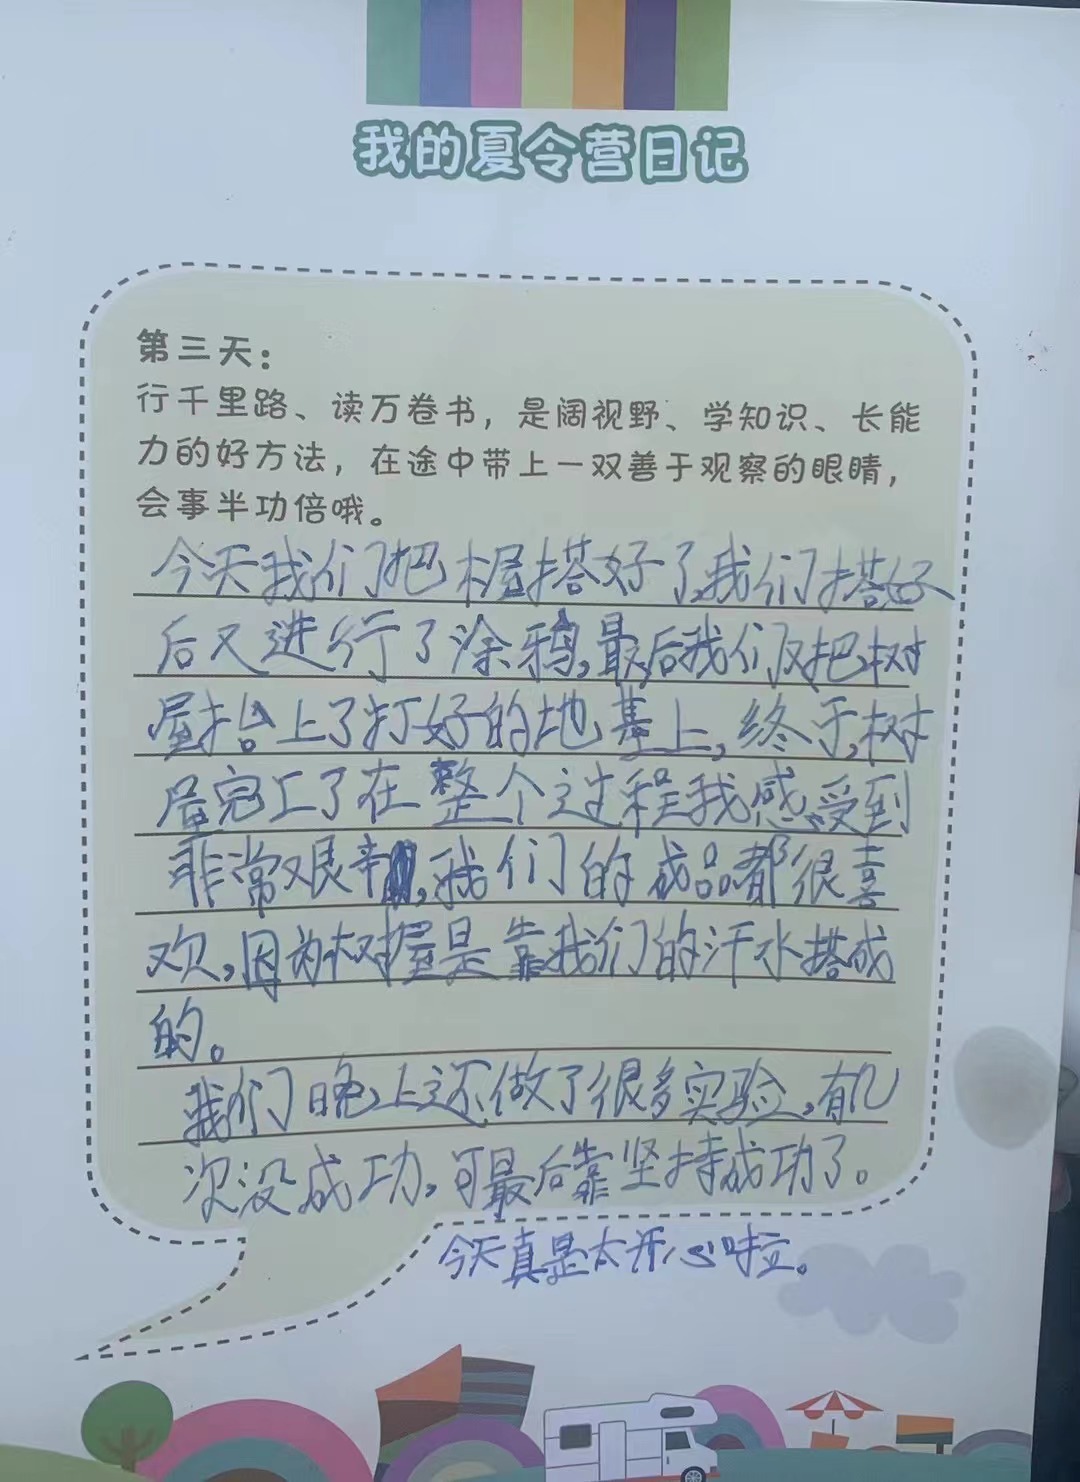 我的夏令营日记
第三天：
行千里路、读万卷书，是阔视野、学知识、长能
力的好方法，在途中带上一双善于观察的眼睛，
会事半功倍哦。
今天我们把木屋搭好了,我们搭好
后又进行了涂鸦,最后我们又把树
屋抬上了打好的地基上,终于,树
屋完工了在整个过程我感受到
非常艰辛,我们的成品都很喜
欢,因为树屋是靠我们的汗水搭成
的。
我们晚上还做了很多实验,有几
次没成功,可最后靠坚持成功了。
今天真是太开心啦。